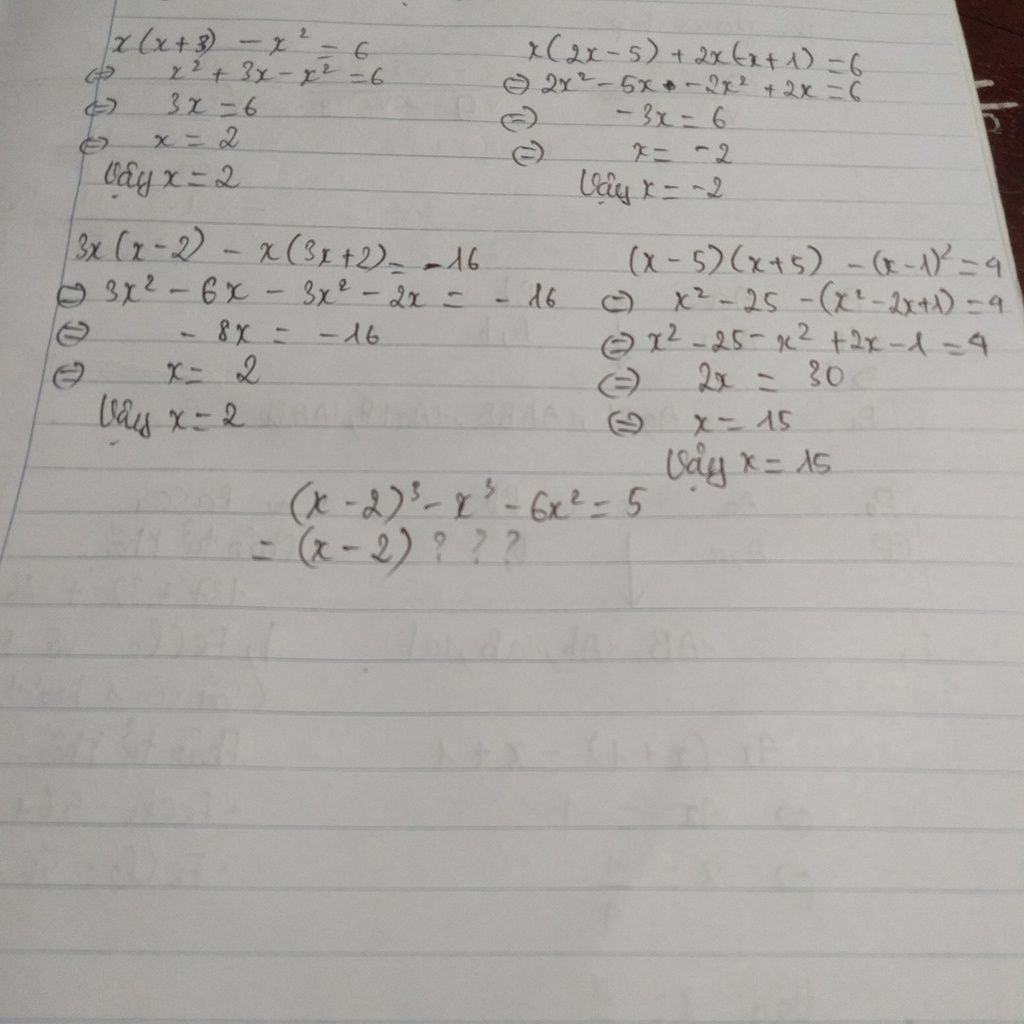 x(x+3) - x² = 6
⇔ x² + 3x - x² = 6
⇔ 3x = 6
⇔ x = 2
Vậy x = 2
x(2x - 5) + 2x(-x+1) = 6
⇔ 2x² - 5x - 2x² + 2x = 6
⇔ -3x = 6
⇔ x = -2
Vậy x = -2
3x(x-2) - x(3x+2) = -16
⇔ 3x² - 6x - 3x² - 2x = -16
⇔ -8x = -16
⇔ x = 2
Vậy x = 2
(x - 5)(x+5) - (x-1)² = 4
⇔ x² - 25 - (x² - 2x+1) = 4
⇔ x² - 25 - x² + 2x - 1 = 4
⇔ 2x = 30
⇔ x = 15
Vậy x = 15
(x - 2)³ - x³ - 6x² = 5
= (x - 2) ? ? ?